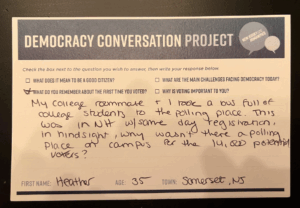 DEMOCRACY CONVERSATION PROJECT
Check the box next to the question you wish to answer, then write your response below.
☐ WHAT DOES IT MEAN TO BE A GOOD CITIZEN?
☐ WHAT ARE THE MAIN CHALLENGES FACING DEMOCRACY TODAY?
☑ WHAT DO YOU REMEMBER ABOUT THE FIRST TIME YOU VOTED?
☐ WHY IS VOTING IMPORTANT TO YOU?
My college roommate + I rode a bus full of
college students to the polling place. This
was in NH w/ same day registration.
In hindsight, why wasn't there a polling
place on campus for the 14,500 potential
voters?
FIRST NAME: Heather AGE: 35 TOWN: Somerset, NJ